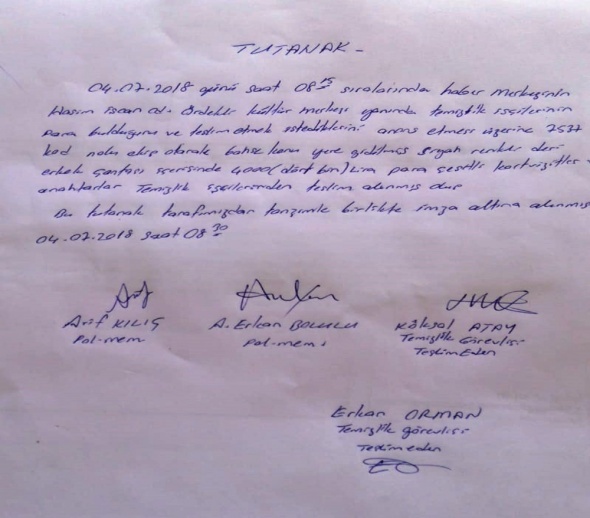 TUTANAK-
04.07.2018 günü saat 08 15 sıralarında haber merkezinin
Haşim işcan cd. Ördekli kültür merkezi yanında temizlik işçilerinin
para bulduğunu ve teslim etmek istediklerini anons etmesi üzerine 7537
kod nolu ekip olarak bahse konu yere gidilmiş siyah renkli deri
erkek çantası içerisinde 4000 (dört bin) Lira para çeşitli kartvizitler
anahtarlar Temizlik işçilerinden teslim alınmış olup
Bu tutanak tarafımızdan tanzimle birlikte imza altına alınmış
04.07.2018 saat 08 30
Arif KILIÇ A. Erkan BOLULU Köksal ATAY
Pol-mem Pol-mem Temizlik Görevlisi
Teslim Eden
Erkan ORMAN
Temizlik görevlisi
Teslim eden